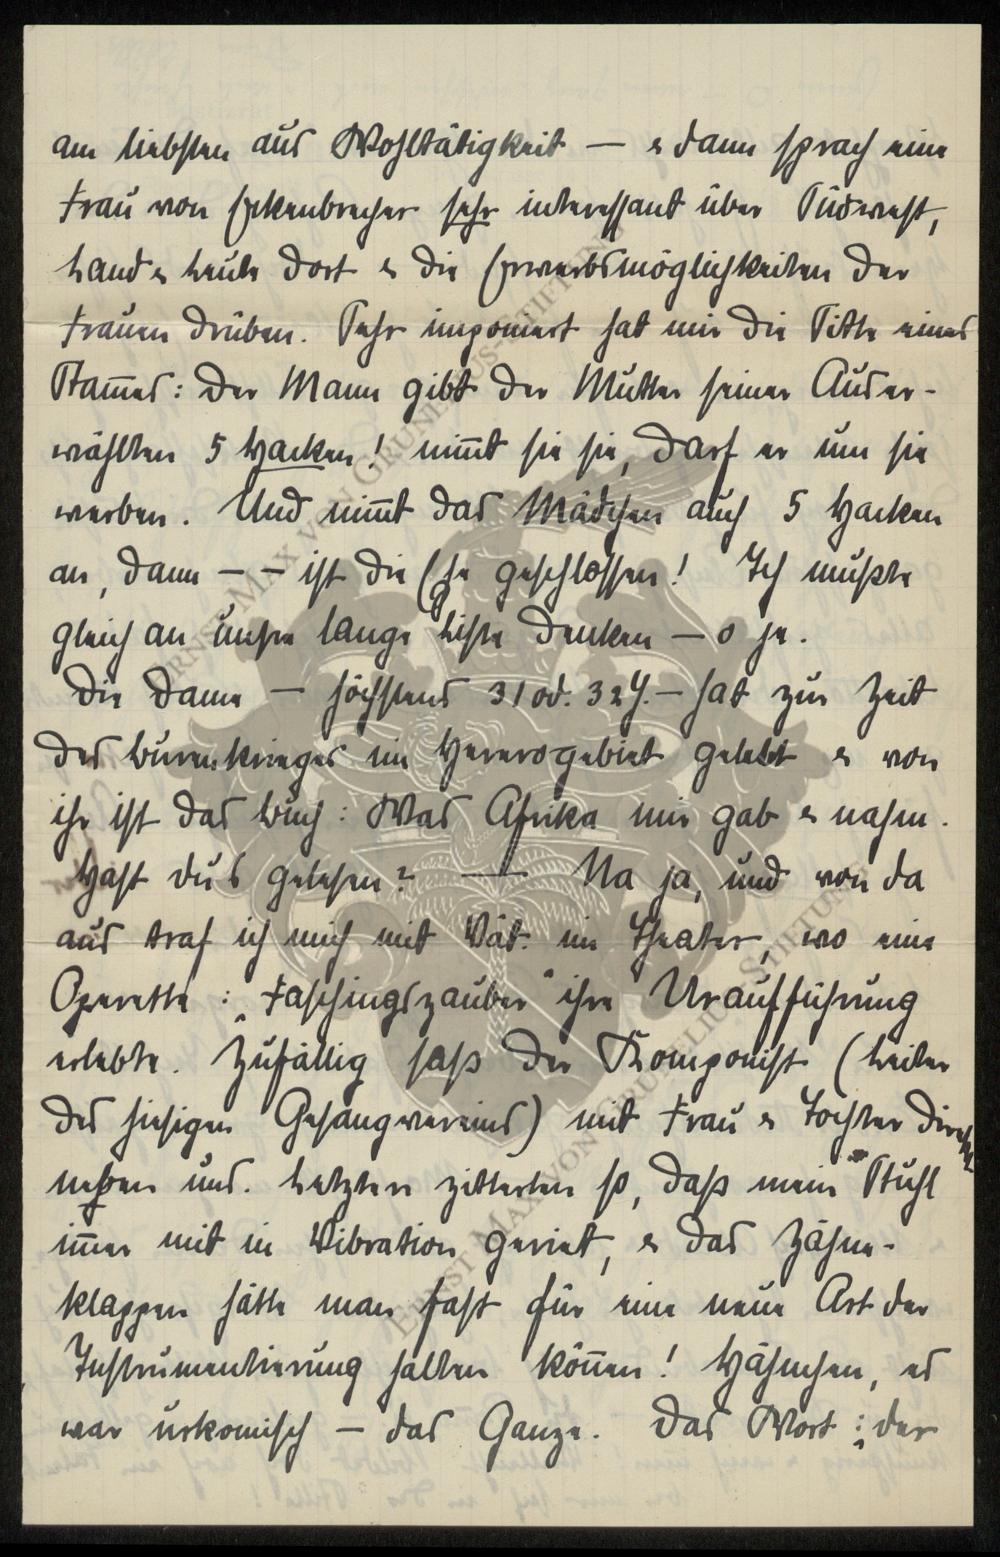 am liebsten aus Wohltätigkeit — & dann sprach eine
Frau von Eckenbrecher sehr interessant über Südwest,
Land & Leute dort & die Erwerbsmöglichkeiten der
Frauen drüben. Sehr imponiert hat mir die Sitte eines
Stam̅es: Der Mann gibt der Mutter seiner Auser-
wählten 5 Hacken! nim̅t sie sie, darf er um sie
werben. Und nim̅t das Mädchen auch 5 Hacken
an, dann — — ist die Ehe geschlossen! Ich mußte
gleich an unsre lange Liste denken — o je.
Die Dame — höchstens 31 od. 32 J. — hat zur Zeit
des Burenkrieges im Hererogebiet gelebt & von
ihr ist das Buch: Was Afrika mir gab & nahm.
Hast du's gelesen? — Na ja, und von da
aus traf ich mich mit Vat. im Theater, wo eine
Operette: „Faschingszauber“ ihre Uraufführung
erlebte. Zufällig saß der Komponist (Leiter
des hiesigen Gesangvereins) mit Frau & Tochter direkt
neben uns. Letztere zitterten so, daß mein Stuhl
im̅er mit in Vibration geriet, & das Zähne-
klappen hätte man fast für eine neue Art der
Instrumentierung halten kön̅en! Hähnchen, es
war urkomisch — das Ganze. Das Wort: „der
ERNST MAX VON GRUNELIUS-STIFTUNG
ERNST MAX VON GRUNELIUS-STIFTUNG